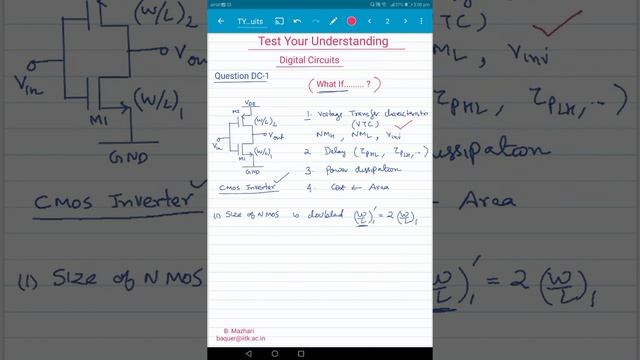 TY...uits
2
Test Your Understanding
Digital Circuits
Question DC-1
( What If......... ? )
VDD
M2
(W/L)2
Vin
Vout
(W/L)1
M1
GND
CMOS Inverter
1. Voltage Transfer characteristics
(VTC)
NMH, NML, Vinv
2. Delay (τPHL, τPLH, ...)
3. Power dissipation
4. Cost ← Area
(1) Size of NMOS is doubled (W/L)1' = 2 (W/L)1
B. Mazhari
baquer@iitk.ac.in
(W/L)2
Vin
(W/L)1
M1
GND
CMOS Inverter
(1) Size of NMOS
Vinv
τPHL, τPLH, ...)
dissipation
← Area
(W/L)1' = 2 (W/L)1